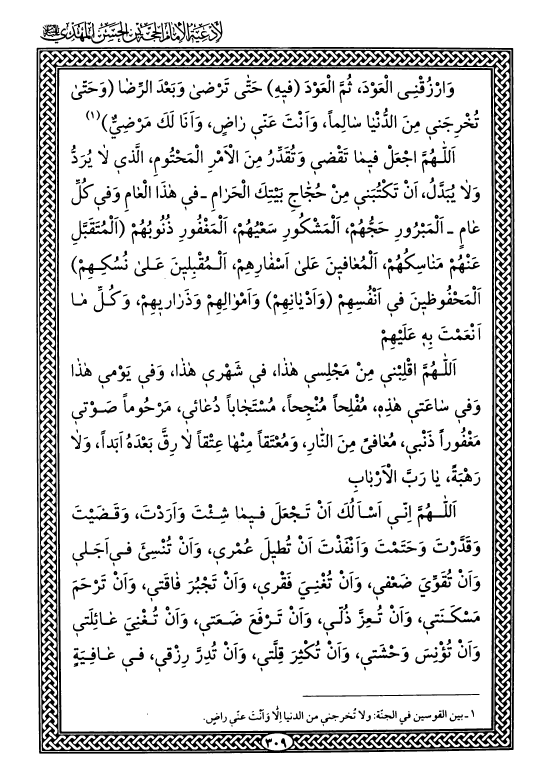 لأدعية الإمام الحجّة بن الحسن المهدي
وَارْزُقْنِي الْعَوْدَ، ثُمَّ الْعَوْدَ (فيهِ) حَتّٰى تَرْضىٰ وَبَعْدَ الرِّضٰا (وَحَتّىٰ
تُخْرِجَني مِنَ الدُّنْيٰا سٰالِماً، وَاَنْتَ عَنّي رٰاضٍ، وَاَنَا لَكَ مَرْضِيٌّ)(١)
اَللّٰهُمَّ اجْعَلْ فيمٰا تَقْضي وَتُقَدِّرُ مِنَ الْاَمْرِ الْمَحْتُومِ، الَّذي لاٰ يُرَدُّ
وَلاٰ يُبَدَّلُ، اَنْ تَكْتُبَني مِنْ حُجّٰاجِ بَيْتِكَ الْحَرٰامِ ـ في هٰذَا الْعٰامِ وَفي كُلِّ
عٰامٍ ـ اَلْمَبْرُورِ حَجُّهُمْ، اَلْمَشْكُورِ سَعْيُهُمْ، اَلْمَغْفُورِ ذُنُوبُهُمْ (اَلْمُتَقَبَّلِ
عَنْهُمْ مَنٰاسِكُهُمْ، اَلْمُعٰافينَ عَلىٰ اَسْفٰارِهِمْ، اَلْمُقْبِلينَ عَلىٰ نُسُكِهِمْ)
اَلْمَحْفُوظينَ في اَنْفُسِهِمْ (وَاَدْيٰانِهِمْ) وَاَمْوٰالِهِمْ وَذَرٰاريهِمْ، وَكُلِّ مٰا
اَنْعَمْتَ بِهِ عَلَيْهِمْ
اَللّٰهُمَّ اقْلِبْني مِنْ مَجْلِسي هٰذٰا، في شَهْري هٰذٰا، وَفي يَوْمي هٰذٰا
وَفي سٰاعَتي هٰذِهِ، مُفْلِحاً مُنْجِحاً، مُسْتَجٰاباً دُعٰائي، مَرْحُوماً صَوْتي
مَغْفُوراً ذَنْبي، مُعٰافىً مِنَ النّٰارِ، وَمُعْتَقاً مِنْهٰا عِتْقاً لاٰ رِقَّ بَعْدَهُ اَبَداً، وَلاٰ
رَهْبَةً، يٰا رَبَّ الْاَرْبٰابِ
اَللّٰهُمَّ اِنّي اَسْاَلُكَ اَنْ تَجْعَلَ فيمٰا شِئْتَ وَاَرَدْتَ، وَقَضَيْتَ
وَقَدَّرْتَ وَحَتَمْتَ وَاَنْفَذْتَ اَنْ تُطيلَ عُمْري، وَاَنْ تُنْسِئَ في اَجَلي
وَاَنْ تُقَوِّيَ ضَعْفي، وَاَنْ تُغْنِيَ فَقْري، وَاَنْ تَجْبُرَ فٰاقَتي، وَاَنْ تَرْحَمَ
مَسْكَنَتي، وَاَنْ تُعِزَّ ذُلّي، وَاَنْ تَرْفَعَ ضَعَتي، وَاَنْ تُغْنِيَ عٰائِلَتي
وَاَنْ تُؤْنِسَ وَحْشَتي، وَاَنْ تُكْثِرَ قِلَّتي، وَاَنْ تُدِرَّ رِزْقي، في عٰافِيَةٍ
١ ـ بين القوسين في الجنّة: ولا تُخرجني من الدنيا إلّا وَأنْتَ عنّي راضٍ.
٣٠٩